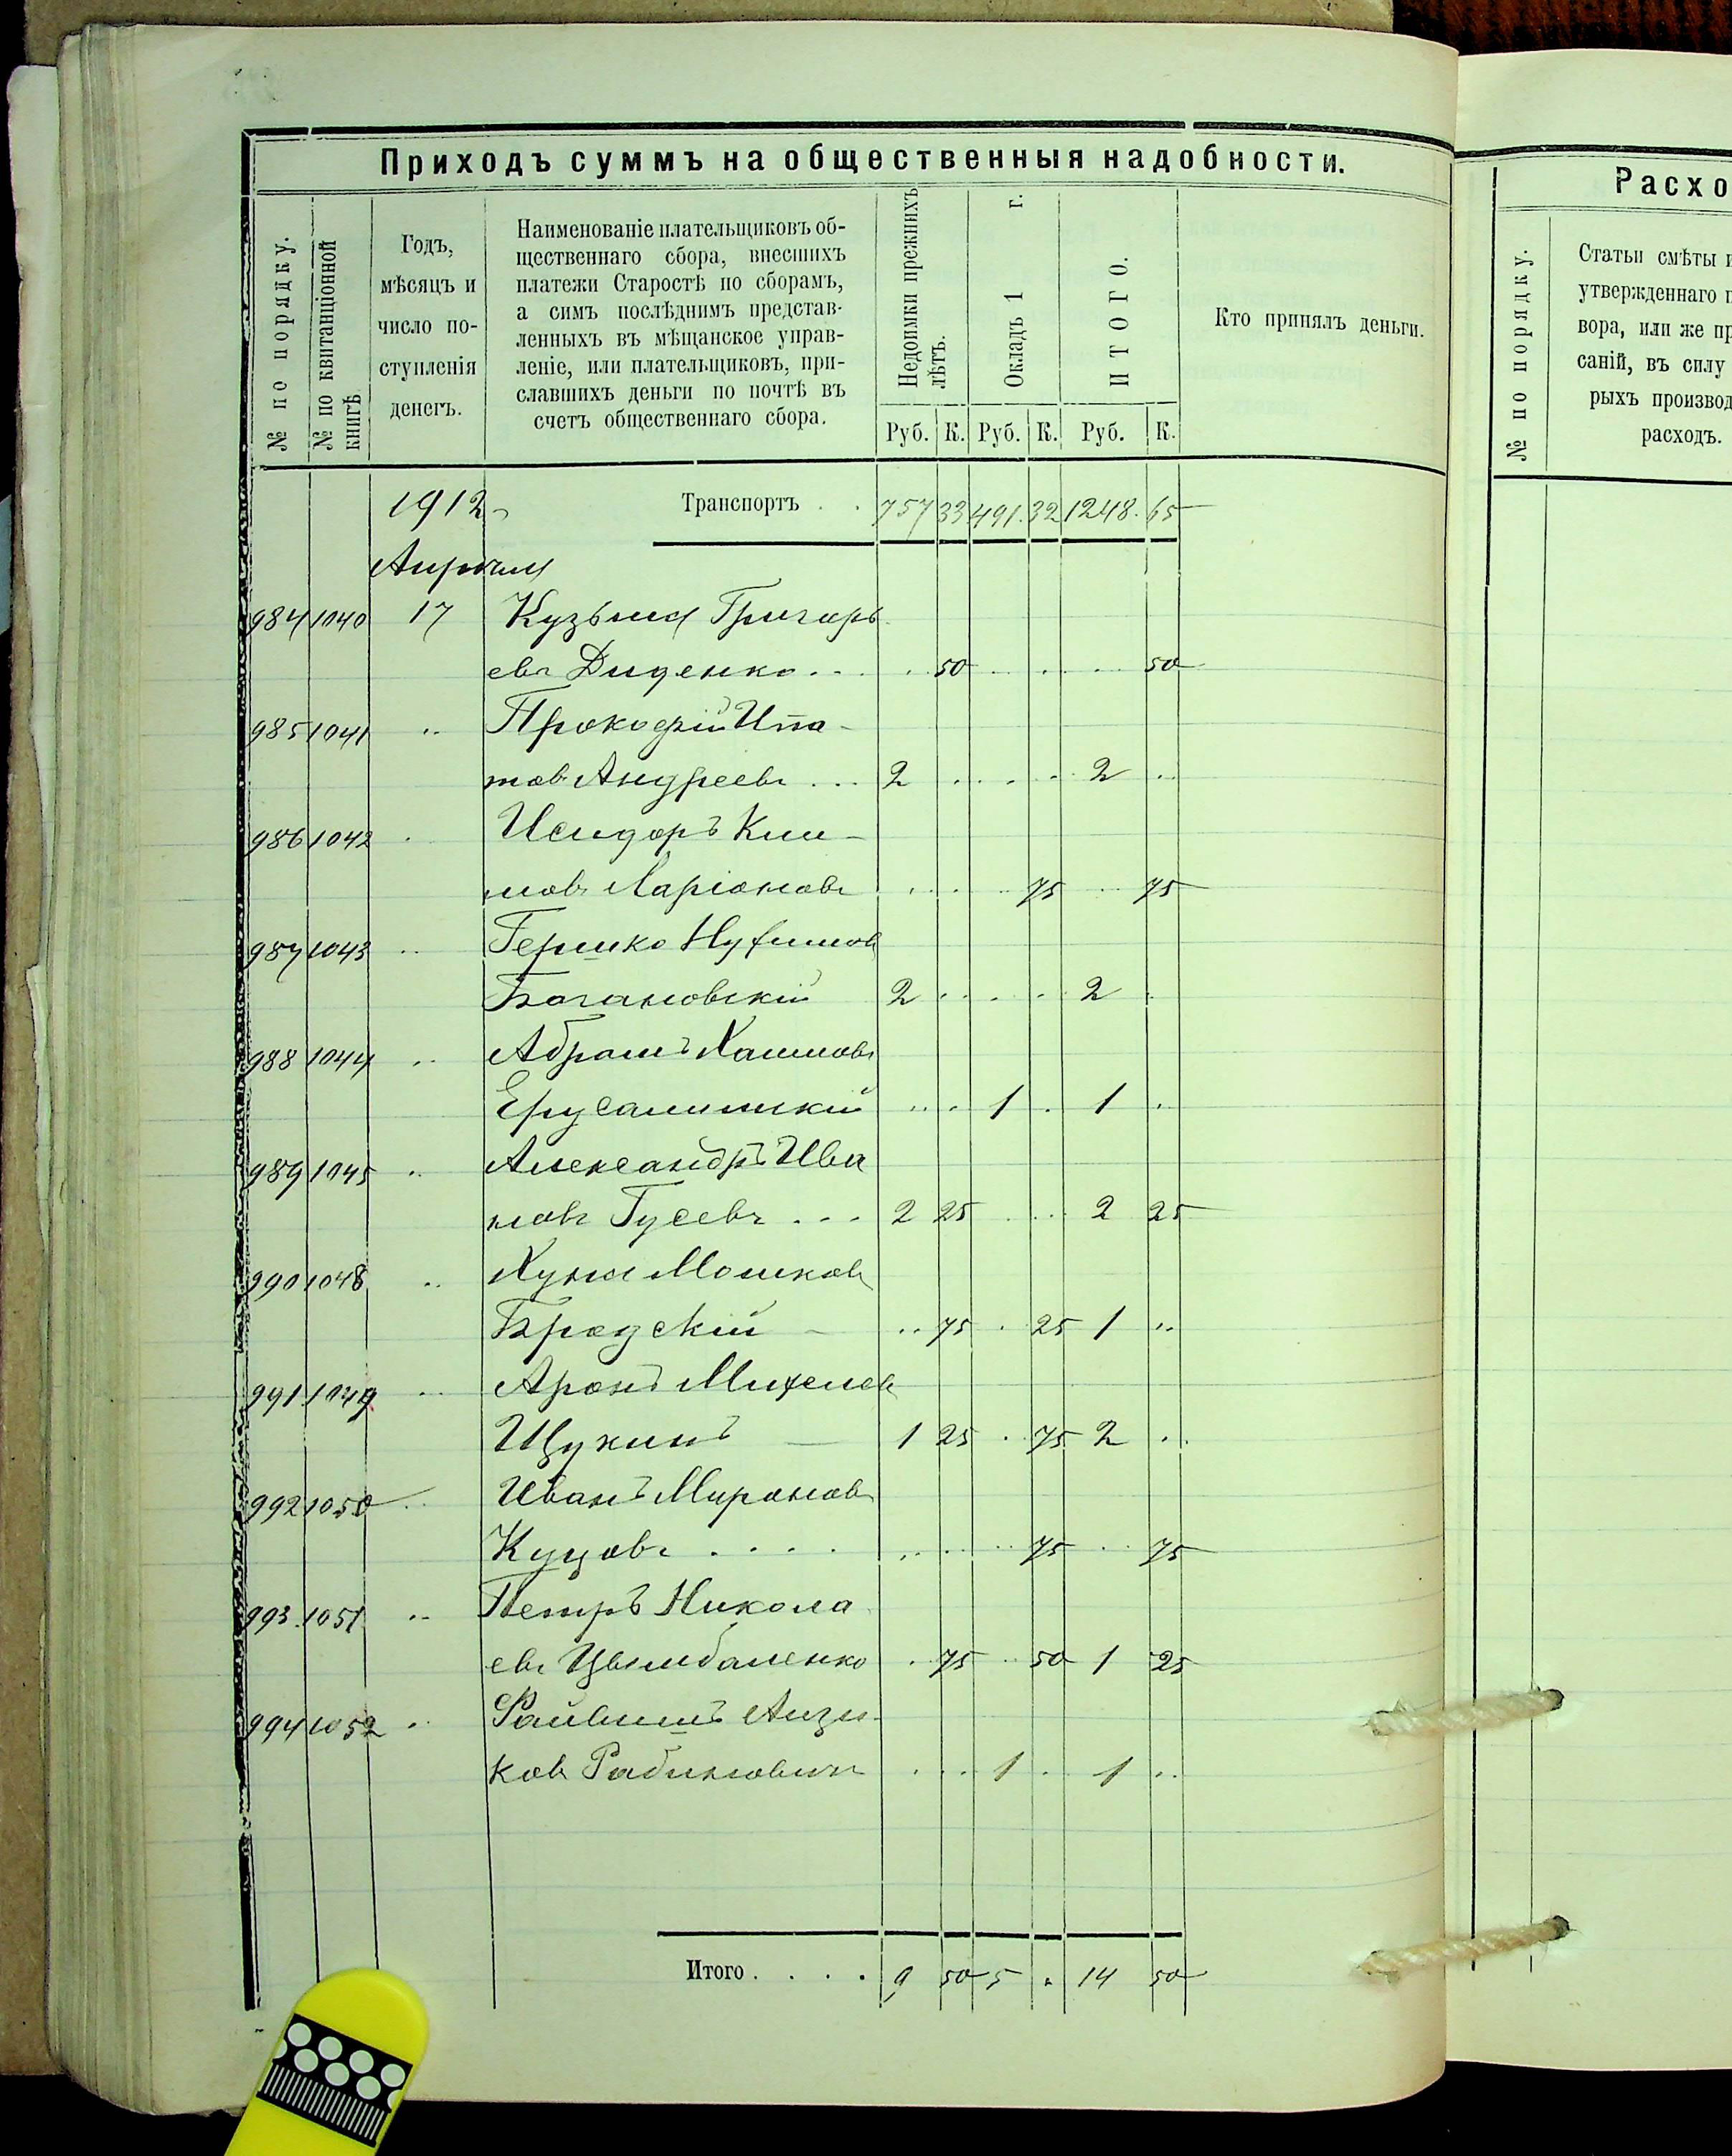 Приходъ суммъ на общественныя надобности.
№ по порядку.
№ по квитанціонной книгѣ
Годъ,
мѣсяцъ и
число по-
ступленія
денегъ.
Наименованіе плательщиковъ об-
щественнаго сбора, внесшихъ
платежи Старостѣ по сборамъ,
а симъ послѣднимъ представ-
ленныхъ въ мѣщанское управ-
леніе, или плательщиковъ, при-
славшихъ деньги по почтѣ въ
счетъ общественнаго сбора.
Недоимки прежнихъ
лѣтъ.
Окладъ 1 г.
ИТОГО.
Кто принялъ деньги.
Руб. К. Руб. К. Руб. К.
1912 Транспортъ . . 757 33 491. 32 1248. 65
Апрѣля
984 1040 17 Кузьма Григорь
евъ Диденко . . . 50 50
985 1041 " Прокофій Ипа-
товъ Андреевъ . . . 2 2
986 1042 Исидоръ Кли-
мовъ Ларіоновъ 75 75
987 1043 " Гершко Нухимовъ
Богановскій 2 2
988 1044 " Абрамъ Хаимовъ
Ерусалимскій 1 1
989 1045 " Александръ Ива
новъ Гусевъ . . . 2 25 2 25
990 1048 " Хуна Мошковъ
Бродскій 75 25 1
991 1049 " Аронъ Михелевъ
Щукинъ 1 25 75 2
992 1050 " Иванъ Мироновъ
Куцовъ . . . . 75 75
993. 1051 " Петръ Никола
евъ Цымбаленко 75 50 1 25
994 1052 " Файвишъ Айзи-
ковъ Рабиновичъ 1 1
Итого . . . . 9 50 5 14 50
Расхо
№ по порядку.
Статьи смѣты и
утвержденнаго п
вора, или же пр
саній, въ силу
рыхъ производ
расходъ.